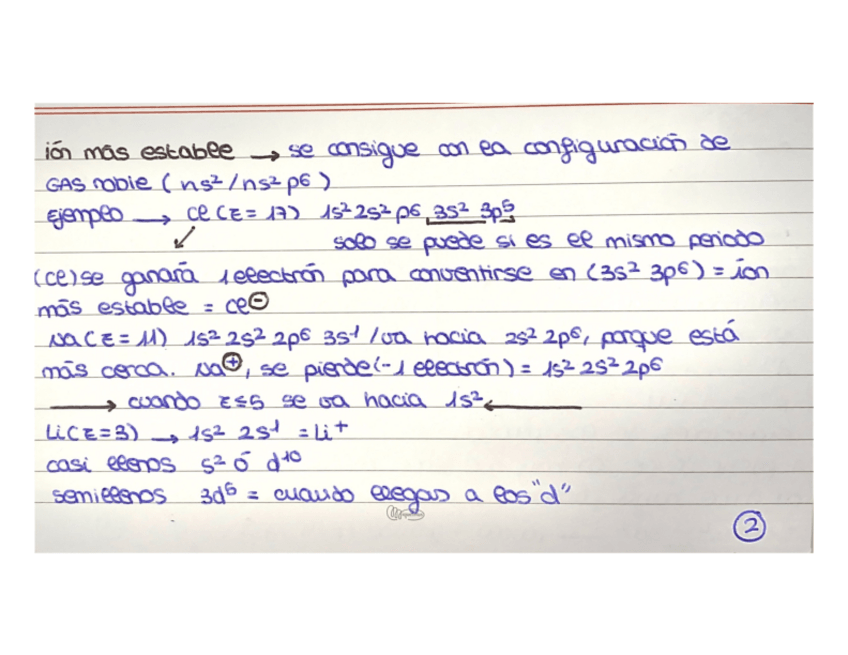 ión más estable → se consigue con la configuración de
GAS noble (ns² / ns² p⁶)
Ejemplo → Cl (Z = 17) 1s² 2s² p⁶ 3s² 3p⁵
solo se puede si es el mismo periodo
(Cl) se ganará 1 electrón para convertirse en (3s² 3p⁶) = ión
más estable = Cl⊖
Na (Z = 11) 1s² 2s² 2p⁶ 3s¹ / va hacia 2s² 2p⁶, porque está
más cerca. Na⊕, se pierde (-1 electrón) = 1s² 2s² 2p⁶
→ cuando Z≤5 se va hacia 1s² ←
Li (Z=3) → 1s² 2s¹ = Li⁺
casi llenos s² ó d¹⁰
semillenos 3d⁵ = cuando llegas a los "d"
2